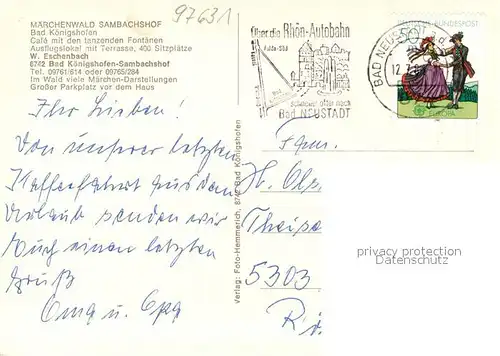 97631
MÄRCHENWALD SAMBACHSHOF
Bad Königshofen
Café mit den tanzenden Fontänen
Ausflugslokal mit Terrasse, 400 Sitzplätze
W. Eschenbach
8742 Bad Königshofen-Sambachshof
Tel. 09761/614 oder 09765/284
Im Wald viele Märchen-Darstellungen
Großer Parkplatz vor dem Haus
Über die Rhön-Autobahn
Fulda-Süd
schneller oder nach
Bad NEUSTADT
BAD NEU
12.7.
DEUTSCHE BUNDESPOST
50
EUROPA
Ihr Lieben!
Von unserer letzten
Kaffeefahrt aus dem
Urlaub senden wir
Euch einen letzten
Gruß
Oma u. Opa
Verlag: Foto-Hemmerich, 8742 Bad Königshofen
Fam.
H. Ols
Theise
5303
R
privacy protection
Datenschutz